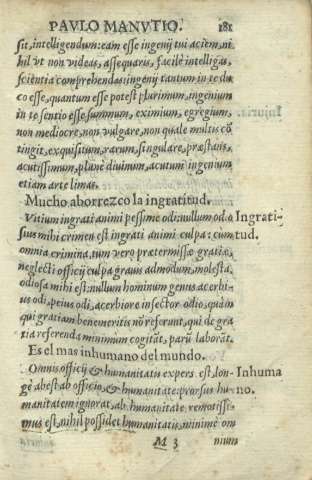 PAVLO MANVTIO. 181
sit, intelligendum: eam esse ingenij tui aciem, ni
hil vt non videas, assequaris, facilè intelligas,
scientia comprehendas: ingenij tantum in te du
co esse, quantum esse potest plurimum, ingenium
in te sentio esse summum, eximium, egregium,
non mediocre, non vulgare, non quale multis cō
tingit, exquisitum, rarum, singulare, præstans,
acutissimum, planè diuinum, acutum ingenium
etiam arte limas.
Mucho aborrezco la ingratitud.
Vitium ingrati animi pessime odi: nullum od o Ingrati-
sius mihi crimen est ingrati animi culpa: cùm tud.
omnia crimina, tum vero prætermissæ gratiæ,
neglecti officij culpa grauis admodum, molesta,
odiosa mihi est: nullum hominum genus acerbi-
us odi, peius odi, acerbiore insector odio, quàm
qui gratiam benemeritis nō referunt, qui de gra
tia referenda minimum cogitāt, parū laborāt.
Es el mas inhumano del mundo.
Omnis officij & humanitatis expers est, lon- Inhuma
gè abest ab officio, & humanitate: prorsus hu- no.
manitatem ignorat, ab humanitate remotissi-
mus est, nihil possidet humanitatis, minimè om
M 3 nium